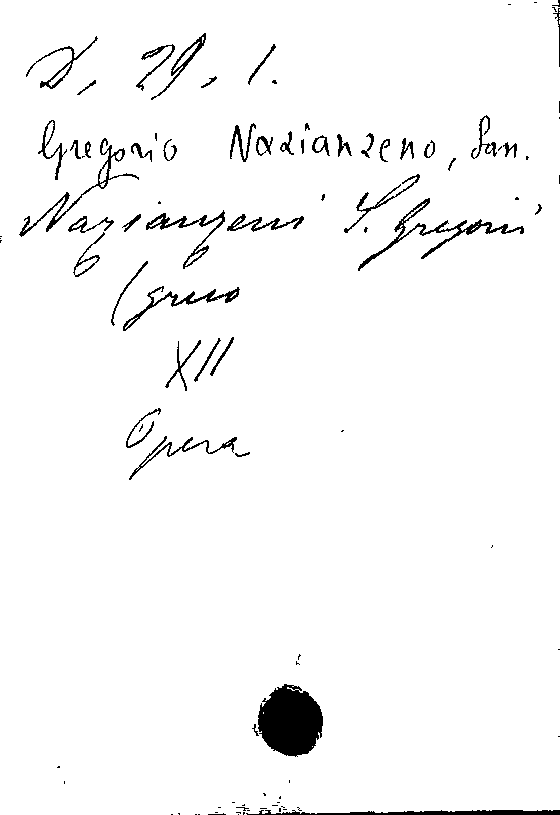 D, 29, 1.
Gregorio Nazianzeno, San.
Nazianzeni S. Gregorii
(greco
XII
Opera